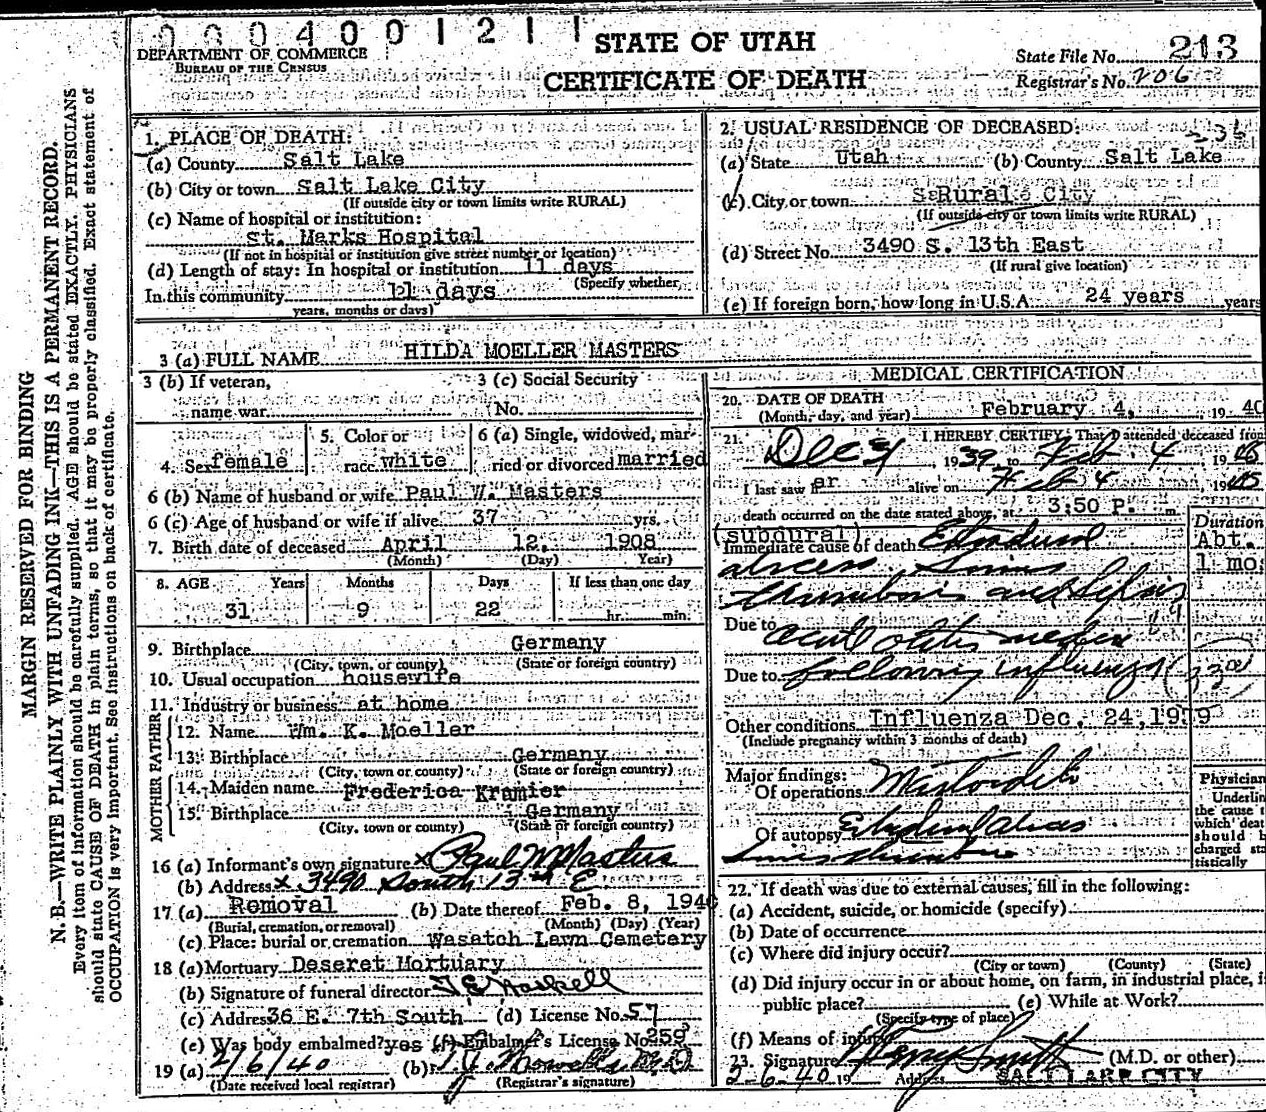 0004001211
DEPARTMENT OF COMMERCE
BUREAU OF THE CENSUS
STATE OF UTAH
CERTIFICATE OF DEATH
State File No. 213
Registrar's No. 206
MARGIN RESERVED FOR BINDING
N. B.—WRITE PLAINLY WITH UNFADING INK—THIS IS A PERMANENT RECORD.
Every item of information should be carefully supplied. AGE should be stated EXACTLY. PHYSICIANS
should state CAUSE OF DEATH in plain terms, so that it may be properly classified. Exact statement of
OCCUPATION is very important. See instructions on back of certificate.
1. PLACE OF DEATH:
(a) County Salt Lake
(b) City or town Salt Lake City
(If outside city or town limits write RURAL)
(c) Name of hospital or institution:
St. Marks Hospital
(If not in hospital or institution give street number or location)
(d) Length of stay: In hospital or institution 11 days
(Specify whether
In this community 11 days
years, months or days)
2. USUAL RESIDENCE OF DECEASED:
(a) State Utah (b) County Salt Lake
(c) City or town Rural City
(If outside city or town limits write RURAL)
(d) Street No. 3490 S. 13th East
(If rural give location)
(e) If foreign born, how long in U.S.A. 24 years years
3 (a) FULL NAME HILDA MOELLER MASTERS
3 (b) If veteran,
name war
3 (c) Social Security
No.
4. Sex female
5. Color or
race white
6 (a) Single, widowed, mar-
ried or divorced married
6 (b) Name of husband or wife Paul W. Masters
6 (c) Age of husband or wife if alive 37 yrs.
7. Birth date of deceased April 12, 1908
(Month) (Day) Year)
8. AGE Years Months Days If less than one day
31 9 22 hr. min.
9. Birthplace Germany
(City, town, or county) (State or foreign country)
10. Usual occupation housewife
11. Industry or business at home
FATHER
12. Name Wm. K. Moeller
13. Birthplace Germany
(City, town or county) (State or foreign country)
MOTHER
14. Maiden name Frederica Kramier
15. Birthplace Germany
(City, town or county) (State or foreign country)
16 (a) Informant's own signature x Paul W Masters
(b) Address x 3490 South 13th E
17 (a) Removal (b) Date thereof Feb. 8, 1940
(Burial, cremation, or removal) (Month) (Day) (Year)
(c) Place: burial or cremation Wasatch Lawn Cemetery
18 (a) Mortuary Deseret Mortuary
(b) Signature of funeral director
(c) Address 36 E. 7th South (d) License No. 57
(e) Was body embalmed? yes (f) Embalmer's License No. 259
19 (a) 2/6/40 (b)
(Date received local registrar) (Registrar's signature)
MEDICAL CERTIFICATION
20. DATE OF DEATH
(Month, day, and year) February 4, 19 40
21. I HEREBY CERTIFY, That I attended deceased from
Dec 1939 to Feb 4 19
I last saw her alive on Feb 4 19
death occurred on the date stated above, at 3:50 P. m.
Duration
(subdural)
Immediate cause of death Extradural
Abt.
1 mo.
abscess. Sinus
thrombosis and
Due to acute otitis media
Due to following influenza
Other conditions Influenza Dec. 24, 1939
(Include pregnancy within 3 months of death)
Major findings:
Of operations
Of autopsy Extradural abscess
Sinus
Physician
Underline
the cause
which death
should be
charged sta-
tistically
22. If death was due to external causes, fill in the following:
(a) Accident, suicide, or homicide (specify)
(b) Date of occurrence
(c) Where did injury occur?
(City or town) (County) (State)
(d) Did injury occur in or about home, on farm, in industrial place, i
public place? (e) While at Work?
(Specify type of place)
(f) Means of injury
23. Signature Harry Smith (M.D. or other)
2-6-40 19 Address SALT LAKE CITY